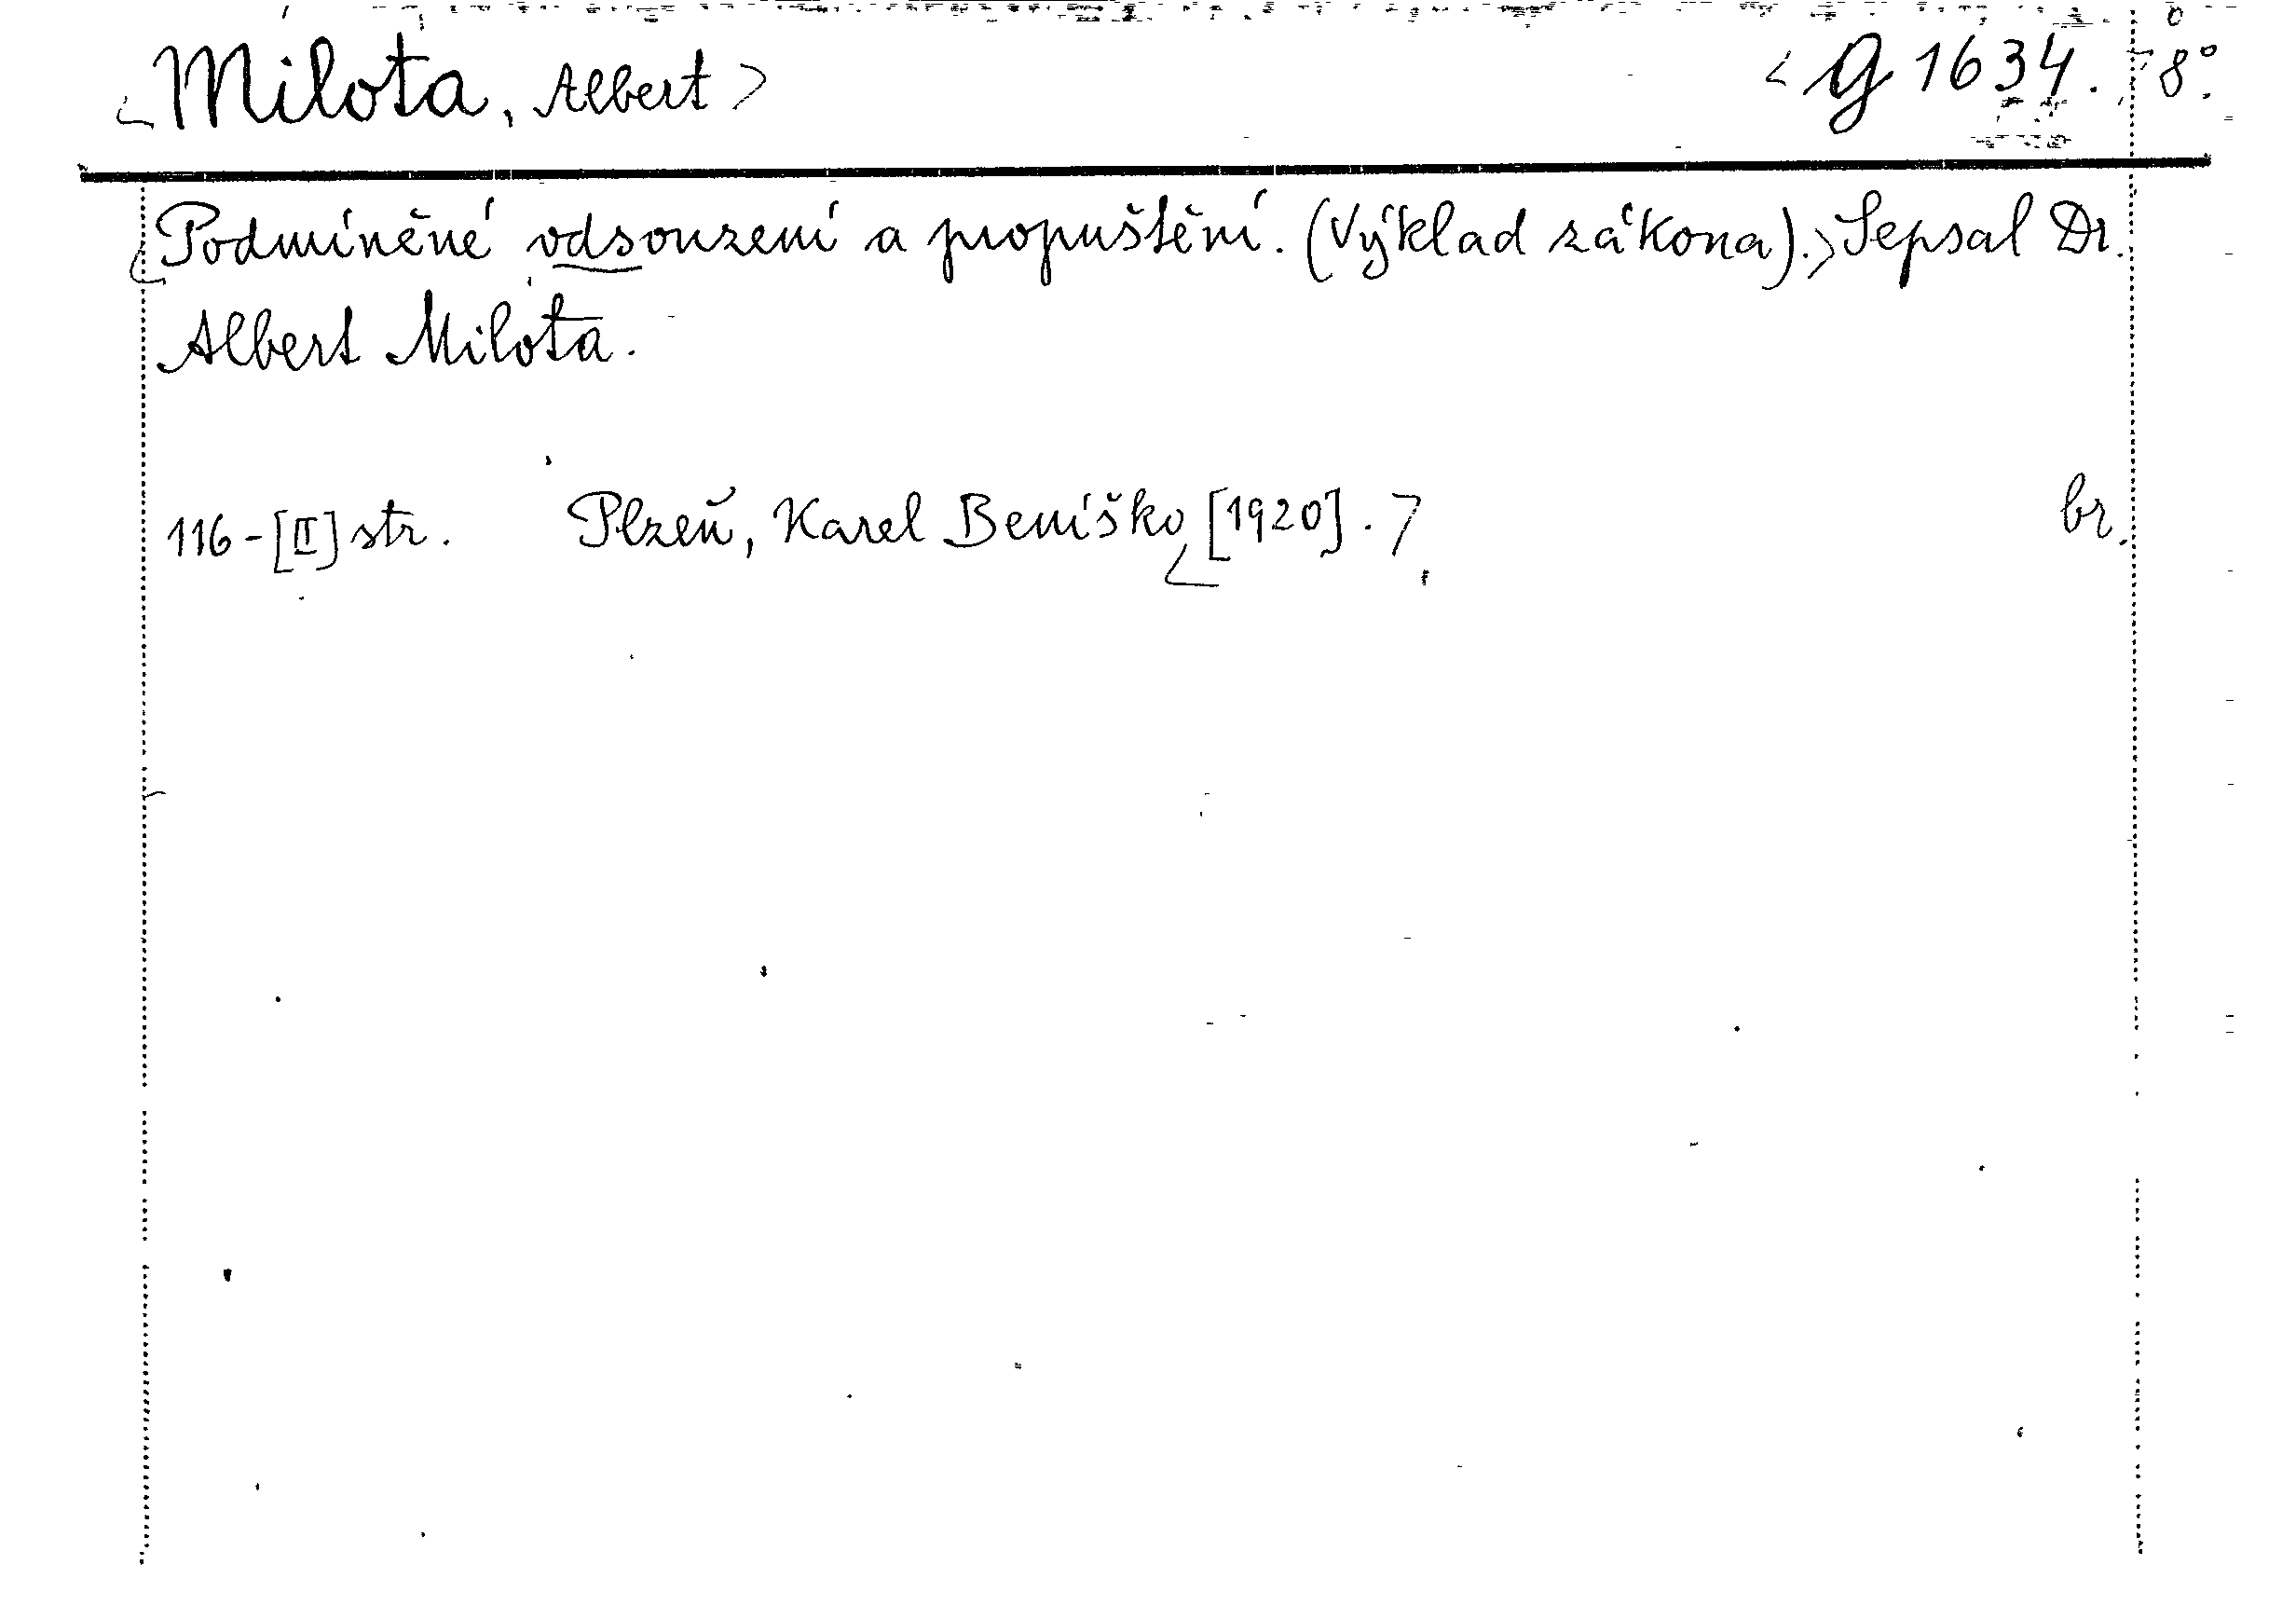 Milota, Albert> <G 1634. 8°.
Podmíněné odsouzení a propuštění. (Výklad zákona).> Sepsal Dr.
Albert Milota.
116-[II] str. Plzeň, Karel Beníško [1920].> br.